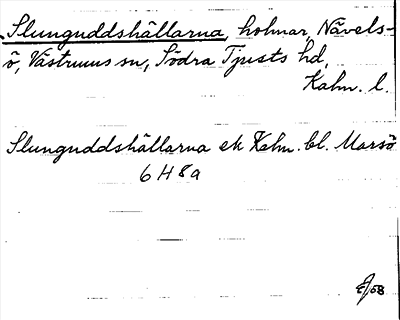 Slunguddshällarna, holmar, Nävels-
ö, Västrums sn, Södra Tjusts hd,
Kalm. l.
Slunguddshällarna ek Kalm. bl. Marsö
6 H 8 a
58